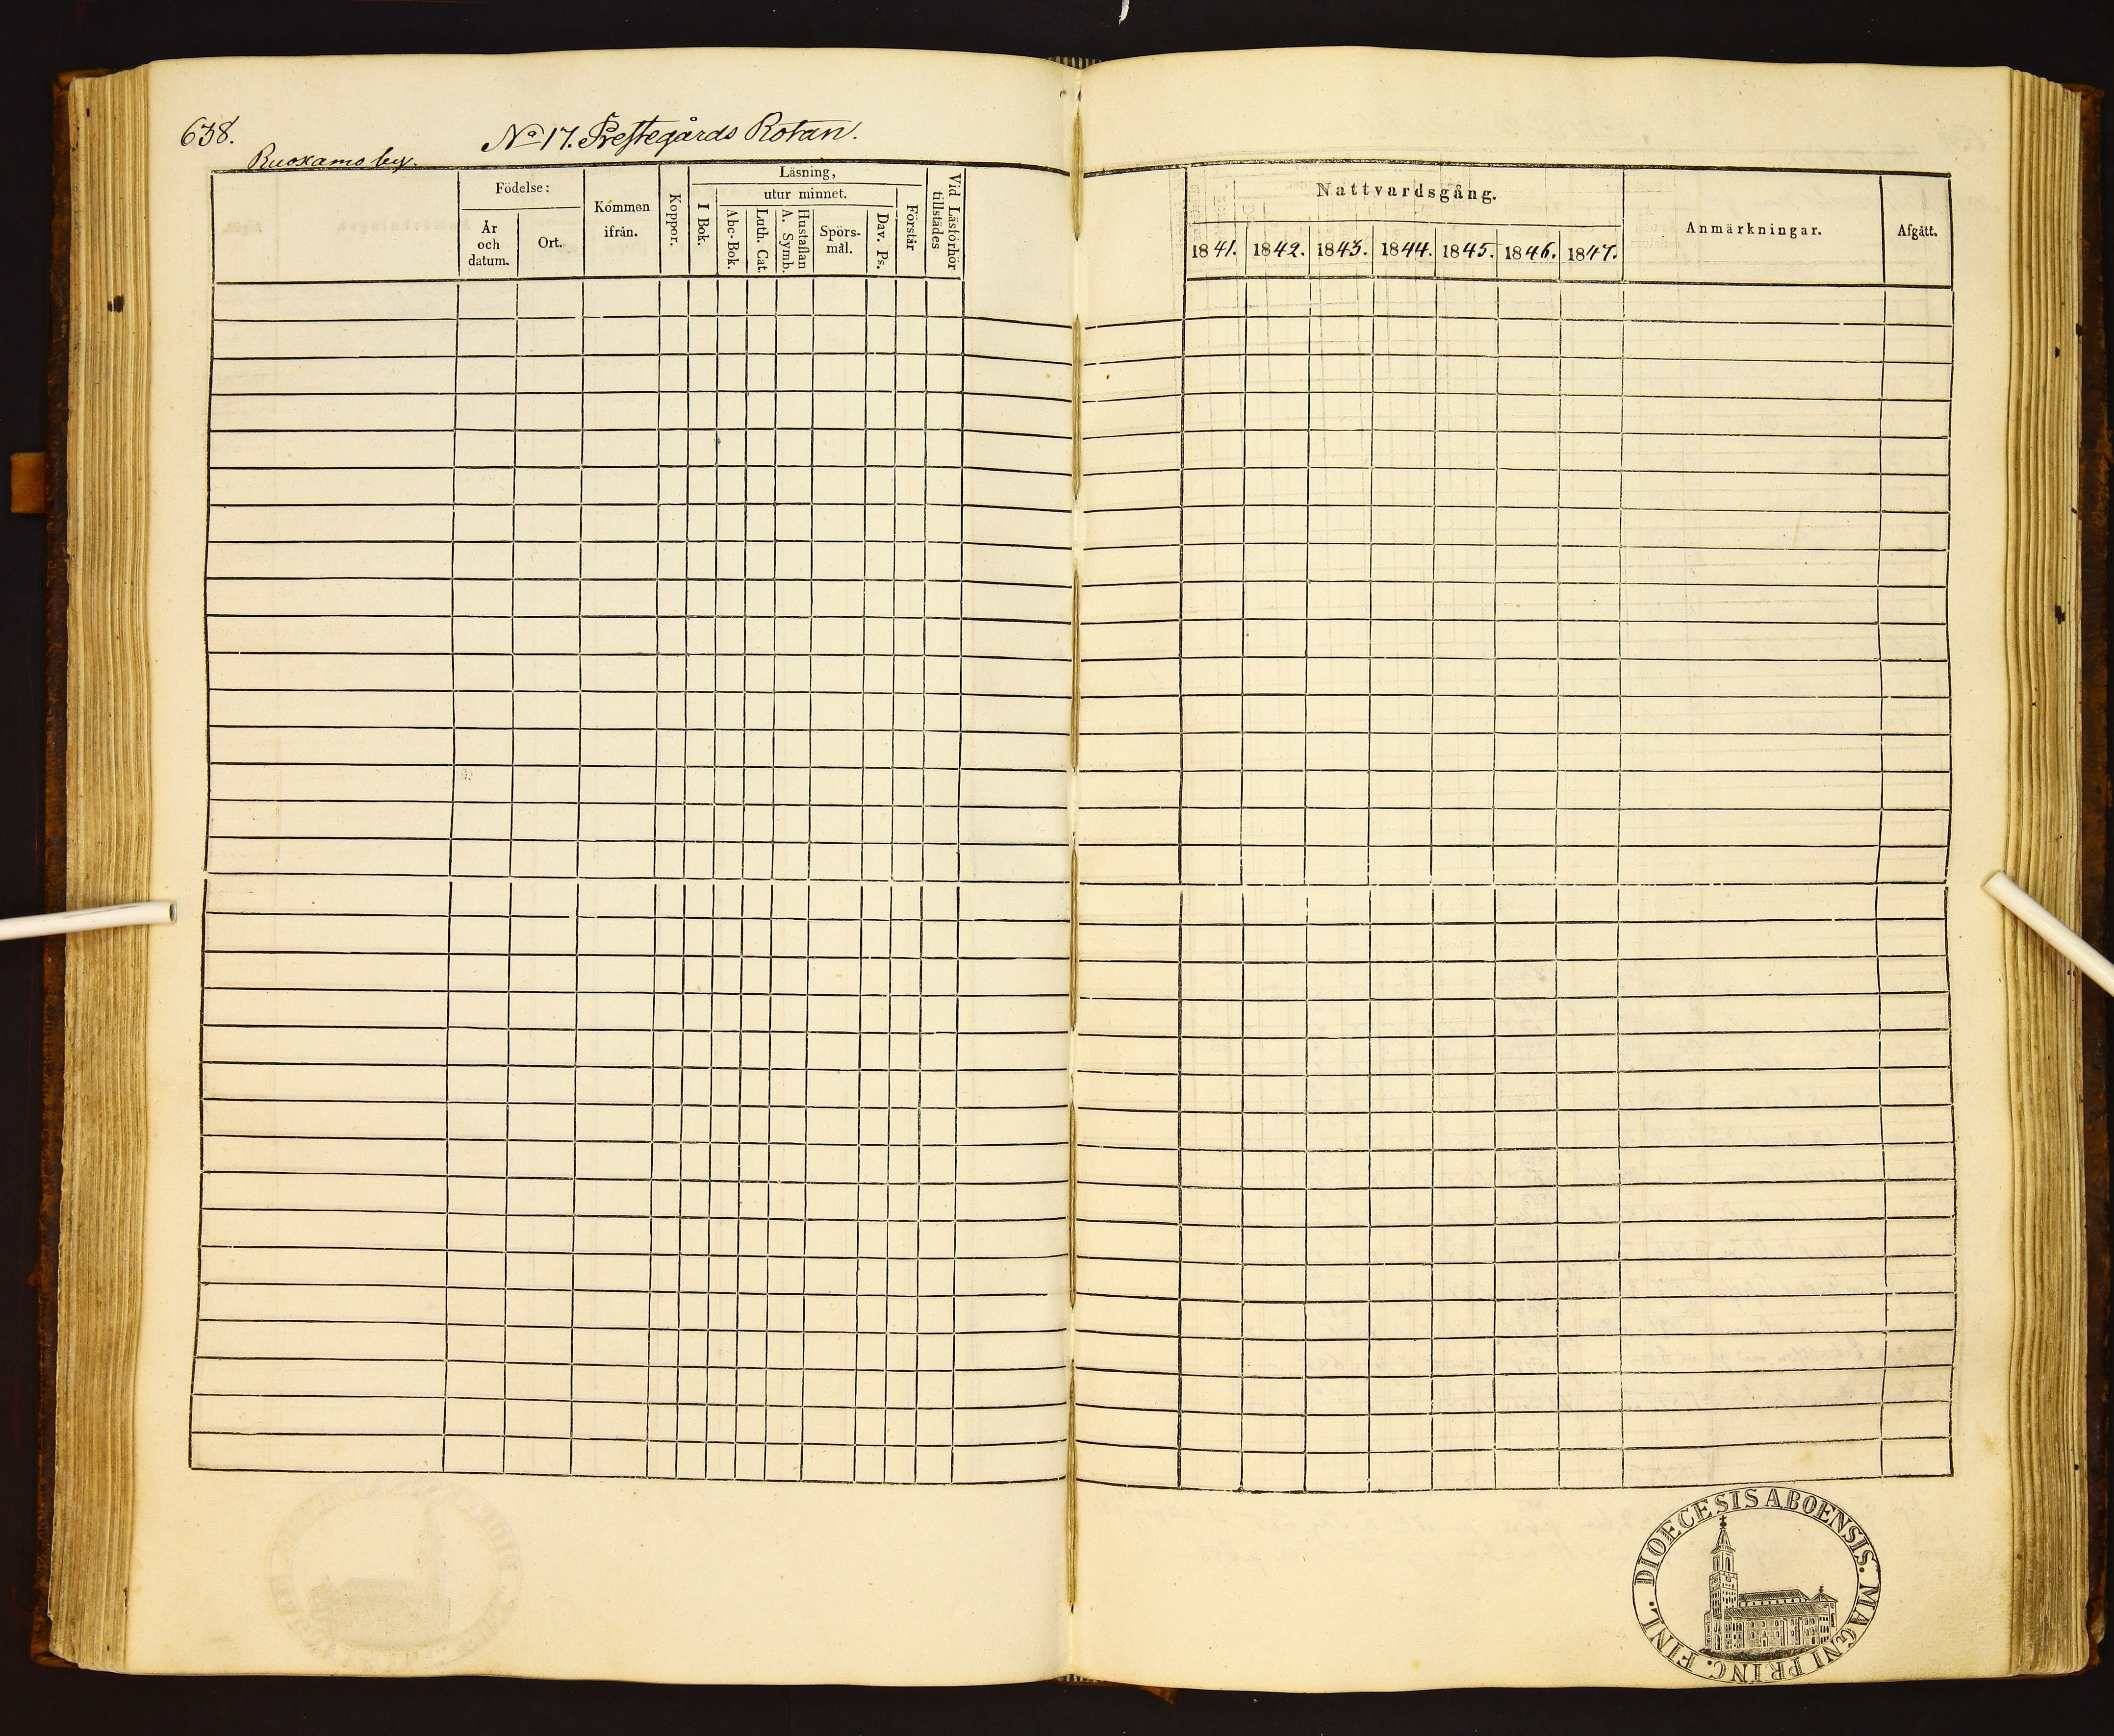 638.
No 17. Prestegårds Rotan.
Ruoxamo by.
Födelse:
År och datum.
Ort.
Kommen ifrån.
Koppor.
Läsning,
I Bok.
utur minnet.
Abc-Bok.
Luth. Cat.
Hustaflan A. Symb.
Spörs-mål.
Dav. Ps.
Förstår
Vid Läsförhör tillstädes
Nattvardsgång.
1841. 1842. 1843. 1844. 1845. 1846. 1847.
Anmärkningar.
Afgått.
DIOECESIS ABOENSIS. MAGNI PRINC. FINL.